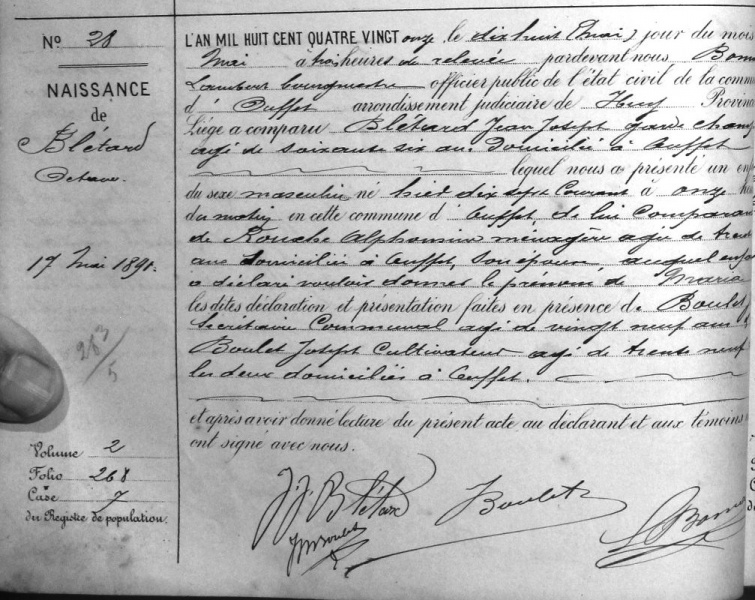 No 28
NAISSANCE
de
Blétard
Octave.
17 Mai 1891.
263/5
Volume 2
Folio 268
Case 7
du Registre de population.
L'AN MIL HUIT CENT QUATRE VINGT onze le dix huit (Mai) jour du mois
Mai à trois heures de relevée pardevant nous Bom
Lambert bourgmestre officier public de l'état civil de la comm
d' Ouffet arrondissement judiciaire de Huy Provin
Liége a comparu Blétard Jean Joseph garde champ
agé de soixante six ans domicilié à Ouffet
lequel nous a présenté un enf
du sexe masculin né hier dix sept Courant à onze he
du matin en cette commune d' Ouffet, de lui Comparan
de Alphonsine ménagère agée de trente
ans domiciliée à Ouffet, son épouse, auquel enfan
a déclaré vouloir donner le prenom de Marie
les dites déclaration et présentation faites en présence de Boulet
Secrétaire Communal agé de vingt neuf ans
Boulet Joseph Cultivateur agé de trente neuf
les deux domiciliés à Ouffet.
et après avoir donné lecture du présent acte au déclarant et aux témoins
ont signé avec nous.
J. J. Blétard Boulet
JM Boulet